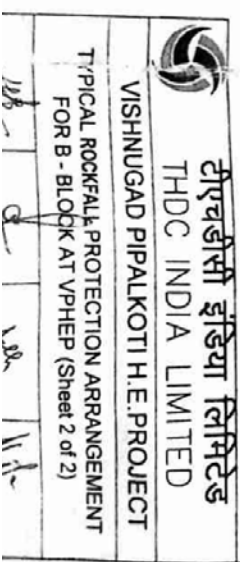 टीएचडीसी इंडिया लिमिटेड
THDC INDIA LIMITED
VISHNUGAD PIPALKOTI H.E.PROJECT
TYPICAL ROCKFALL PROTECTION ARRANGEMENT
FOR B - BLOCK AT VPHEP (Sheet 2 of 2)